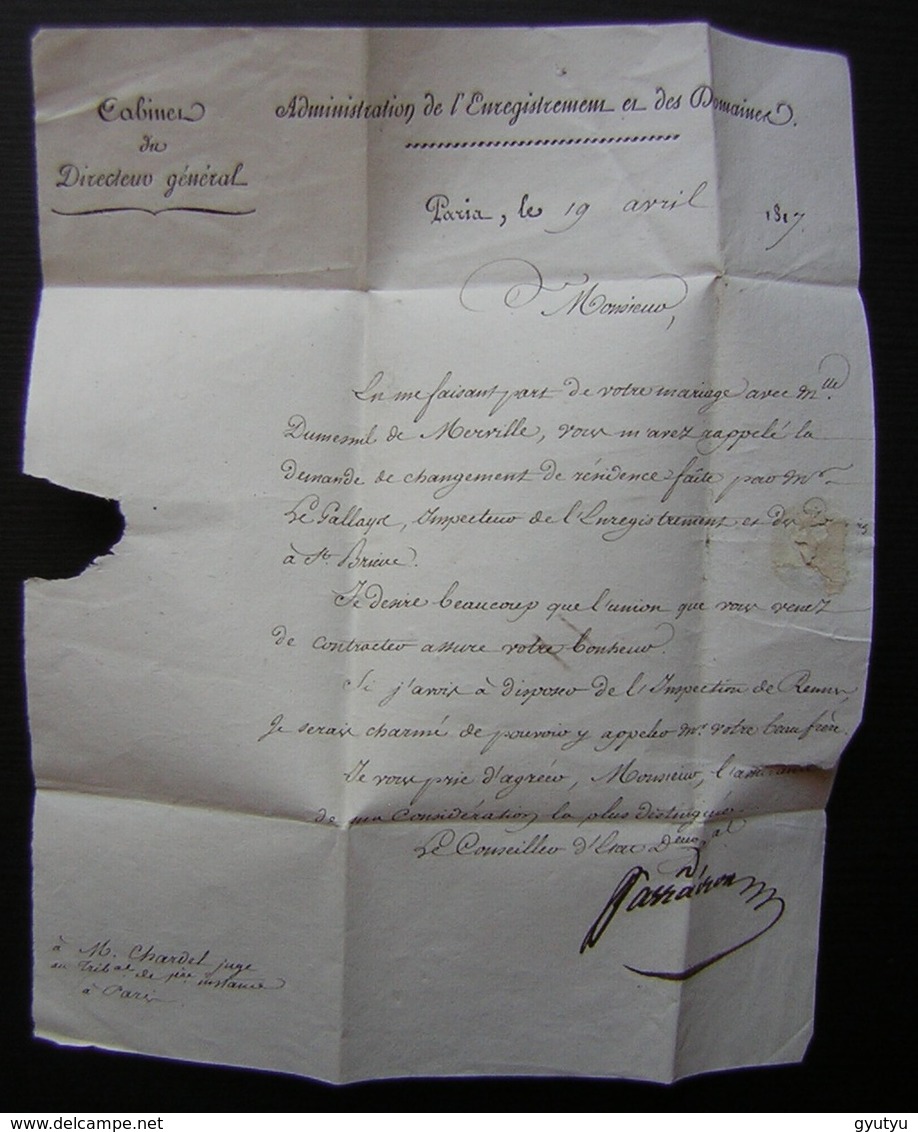 Cabinet
du
Directeur général
Administration de l'Enregistrement et des Domaines.
Paris, le 19 avril 1817.
Monsieur,
En me faisant part de votre mariage avec Mlle
Dumesnil de Merville, vous m'avez rappelé la
demande de changement de résidence faite par Mr
Le Gallayx, Inspecteur de l'Enregistrement et des
à St Brieuc.
Je desire beaucoup que l'union que vous venez
de contracter assure votre bonheur.
Si j'avois à disposer de l'Inspection de Rennes,
Je serais charmé de pouvoir y appeler Mr votre beau frère.
Je vous prie d'agréer, Monsieur, l'assurance
de ma Considération la plus distinguée.
Le Conseiller d'Etat Deur Gal
Barrairon
à M. Chardel juge
au Tribal de 1ère instance
à Paris
delcampe.net
gyutyu